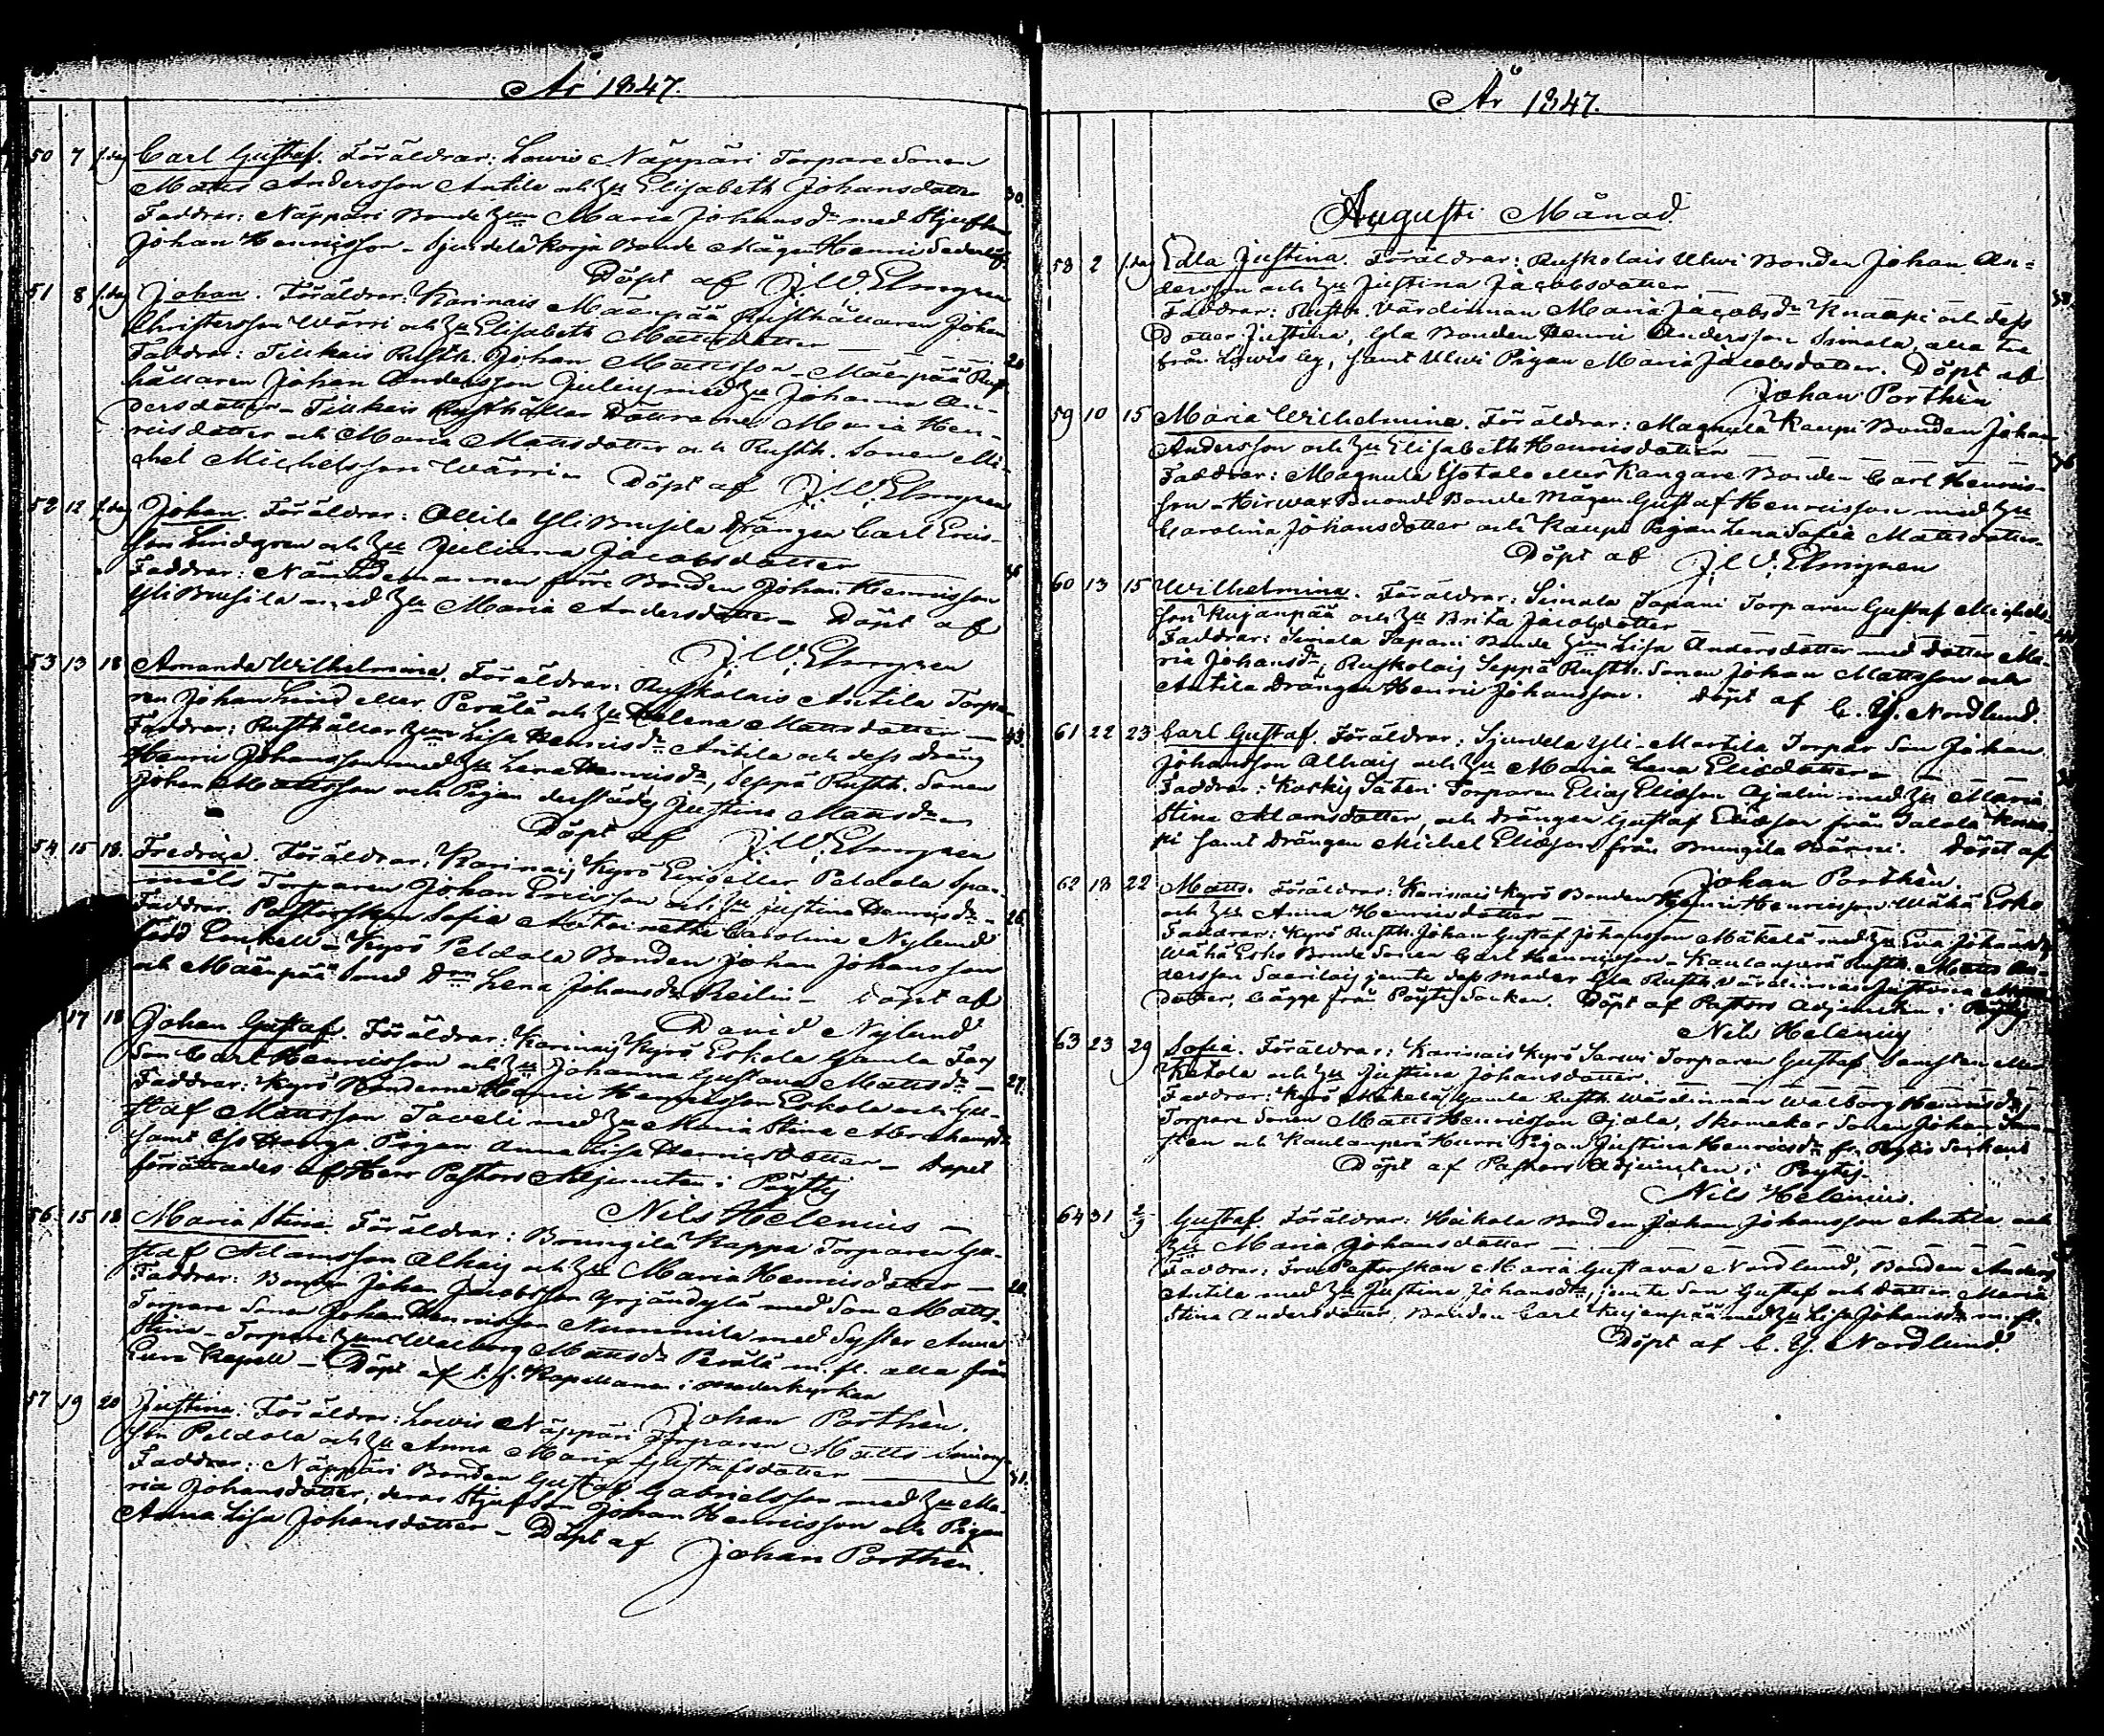 År 1847.
50 7 f. dag Carl Gustaf. Föräldrar: Lowis Näppäri Torpare Sonen
Matts Andersson Antila och Hu Elisabeth Johansdotter 30.
Faddrar: Näppäri Bonde Hun Maria Johansdr med Stjufson
Johan Henricsson - Sjundelä Korja Bonde Mågen Henric
Döpt af J. W. Elmgren
51 8 f. dag Johan. Föräldrar: Karinais Mäenpää Rusthållaren Johan
Christersson Wärri och Hu Elisabeth Mattsdotter
Faddrar: Tiikais Rusth. Johan Mattsson - Mäenpää Rust-
hållaren Johan Andersson med Hu Johanna An-
dersdotter - Tiikais Rusthållar Döttrarne Maria Hen-
ricsdotter och Maria Mattsdotter och Rusth. Sonen Mi-
chel Michelsson Wärri - Döpt af J. W. Elmgren
52 12 f. dag Johan. Föräldrar: Ollila Yli Buhsila Drängen Carl Erics-
son Lindgren och Hu Juliana Jacobsdotter 35
Faddrar: Nämndemannen förre Bonden Johan Henricsson
Yli Buhsila med Hu Maria Andersdotter - Döpt af
J. W. Elmgren
53 13 18 Amanda Wilhelmina. Föräldrar: Ruskolais Antila Torpa-
ren Johan Lind eller Perälä och Hu Helena Mattsdotter 43.
Faddrar: Rusthållar Hun Lisa Henricsdr Antila och dess dräng
Henric Johansson med Hu Lena Henricsdr, Seppä Rusth. Sonen
Johan Mattsson och Pigan derstädes Justina Mattsdr
Döpt af J. W. Elmgren
54 15 18. Fredric. Föräldrar: Karinais Kyrö Eeri eller Peldola Spa-
måls Torparen Johan Ericsson och Hu Justina Henricsdr - 26.
Faddrar Pastorskan Sofia Antoinette Carolina Nylund
född Emkell - Kyrö Peldola Bonden Johan Johansson
och Mäenpää Lena Johansdr Reilin - Döpt af
David Nylund
17 18 Johan Gustaf. Föräldrar: Karinais Kyrö Eskola Gamla Far
Son Carl Henricsson och Hu Johanna Gustava Mattsdr - 27.
Faddrar: Kyrö Bönderne Henric Henricsson Eskola och Gu-
staf Mattsson Taveli med Hu Maria Stina Abrahamsdr
samt Pigan Anna Lisa Henricsdotter - Dopet
förättades af Herr Pastors Adjuncten i Pöytis
Nils Helenius -
56 15 18 Maria Stina. Föräldrar: Brungila Kappa Torparen Gu-
staf Adamsson Alhais och Hu Maria Henricsdotter -
Faddrar: Bonden Johan Jacobsson Yrjändylä med Son Matts. 20.
Torpare Sonen Johan Henricsson Nummila med Syster Anna
Stina - Torpare Hun Walborg Mattsdr Perälä m. fl. alla från
Eura Kapell - Döpt af t. f. Kapellanen i moderkyrkan
Johan Porthèn.
57 19 20 Justina. Föräldrar: Lowis Näppäri Torparen Matts
son Peldola och Hu Anna Maria Gustafsdotter 31.
Faddrar: Näppäri Bonden Gustaf Gabrielsson med Hu Ma-
ria Johansdotter, deras Stjufson Johan Henricsson och Pigan
Anna Lisa Johansdotter - Döpt af
Johan Porthèn.
År 1847.
Augusti Månad.
58 2 f. dag Edla Justina. Föräldrar: Ruskolais Ulwi Bonden Johan An-
dersson och Hu Justina Jacobsdotter 38.
Faddrar: Rusth. Värdinnan Maria Jacobsdr Knaapi och dess
Dotter Justina, Gla Bonden Henric Andersson Simola, alla tre
från Lowis by, samt Ulwi Pigan Maria Jacobsdotter. Döpt af
Johan Porthèn
59 10 15 Maria Wilhelmina. Föräldrar: Magnula Kaupi Bonden Johan
Andersson och Hu Elisabeth Henricsdotter
Faddrar: Magnula Yotalo eller Kangare Bonden Carl Henrics-
son - Hirwax Buondi Bonde Mågen Gustaf Henricsson med Hu
Carolina Johansdotter och Kaupi Pigan Lena Sofia Mattsdotter.
Döpt af J. W. Elmgren
60 13 15 Wilhelmina. Föräldrar: Simola Tapani Torparen Gustaf Michels-
son Kujanpää och Hu Brita Jacobsdotter
Faddrar: Simola Tapani Bonde Hun Lisa Andersdotter med dotter Ma-
ria Johansdr, Ruskolais Seppä Rusth. Sonen Johan Mattsson och
Antila Drängen Henric Johansson. Döpt af C. G. Nordlund.
61 22 23 Carl Gustaf. Föräldrar: Sjundela Yli-Martila Torpar Son Johan
Johansson Alhais och Hu Maria Lena Eliædotter -
Faddrar: Koskis Säteri Torparen Elias Eliæson Ojalin med Hu Maria
Stina Adamsdotter, och Drängen Gustaf Eliæson från Talola
pi samt Drängen Michel Eliæson från Brungila Wärri. Döpt af
Johan Porthèn.
62 18 22 Matts. Föräldrar: Karinais Kyrö Bonden Henric Henricsson Wähä Esko
och Hu Anna Henricsdotter
Faddrar: Kyrö Rusth. Johan Gustaf Johansson Mäkelä med Hu Eva Johansdr
Wähä Esko Bonde Sonen Carl Henricsson - Kaulanperä Rusth. Matts An-
dersson jemte dess moder Gla Rusth. Värdinnan Justina
dotter, bägge från Pöytis Socken. Döpt af Pastors Adjuncten i Pöytis
Nils Helenius
63 23 29 Sofia. Föräldrar: Karinais Kyrö Torparen Gustaf Samsten eller
Ketola och Hu Justina Johansdotter.
Faddrar: Kyrö Mäkelä Gamla Rusth. Wärdinnan Walborg Henricsdr,
Torpare Sonen Matts Henricsson Ojala, Skomakar Sonen Johan Sam-
sten och Kaulanperä Hurri Pigan Justina Henricsdr fr. Pöytis Sockens
Döpt af Pastors Adjuncten i Pöytis.
Nils Helenius.
64 31 2/9 Gustaf. Föräldrar: Heikola Bonden Johan Johansson Antila och
Hu Maria Johansdotter
Faddrar: Fru Pastorskan Maria Gustava Nordlund, Bonden Anders
Antila med Hu Justina Johansdtr, jemte Son Gustaf och dotter Maria
Stina Andersdotter, Bonden Carl Kujanpää med Hu Lisa Johansdr m. fl.
Döpt af C. G. Nordlund.